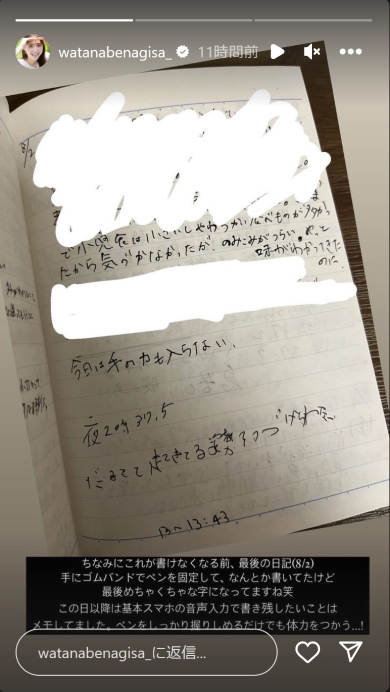 watanabenagisa_ 11時間前
8/2
で小児食は小さいしやわらかい食べものが多かっ
たから気づかなかったが、のみこみがつらい。やっと
味がわかってきた
のに
今日は手の力も入らない。
夜2時 37.5
だるくて
13〜13:43
ちなみにこれが書けなくなる前、最後の日記(8/2)
手にゴムバンドでペンを固定して、なんとか書いてたけど
最後めちゃくちゃな字になってますね笑
この日以降は基本スマホの音声入力で書き残したいことは
メモしてました。ペンをしっかり握りしめるだけでも体力をつかう...!
watanabenagisa_に返信...